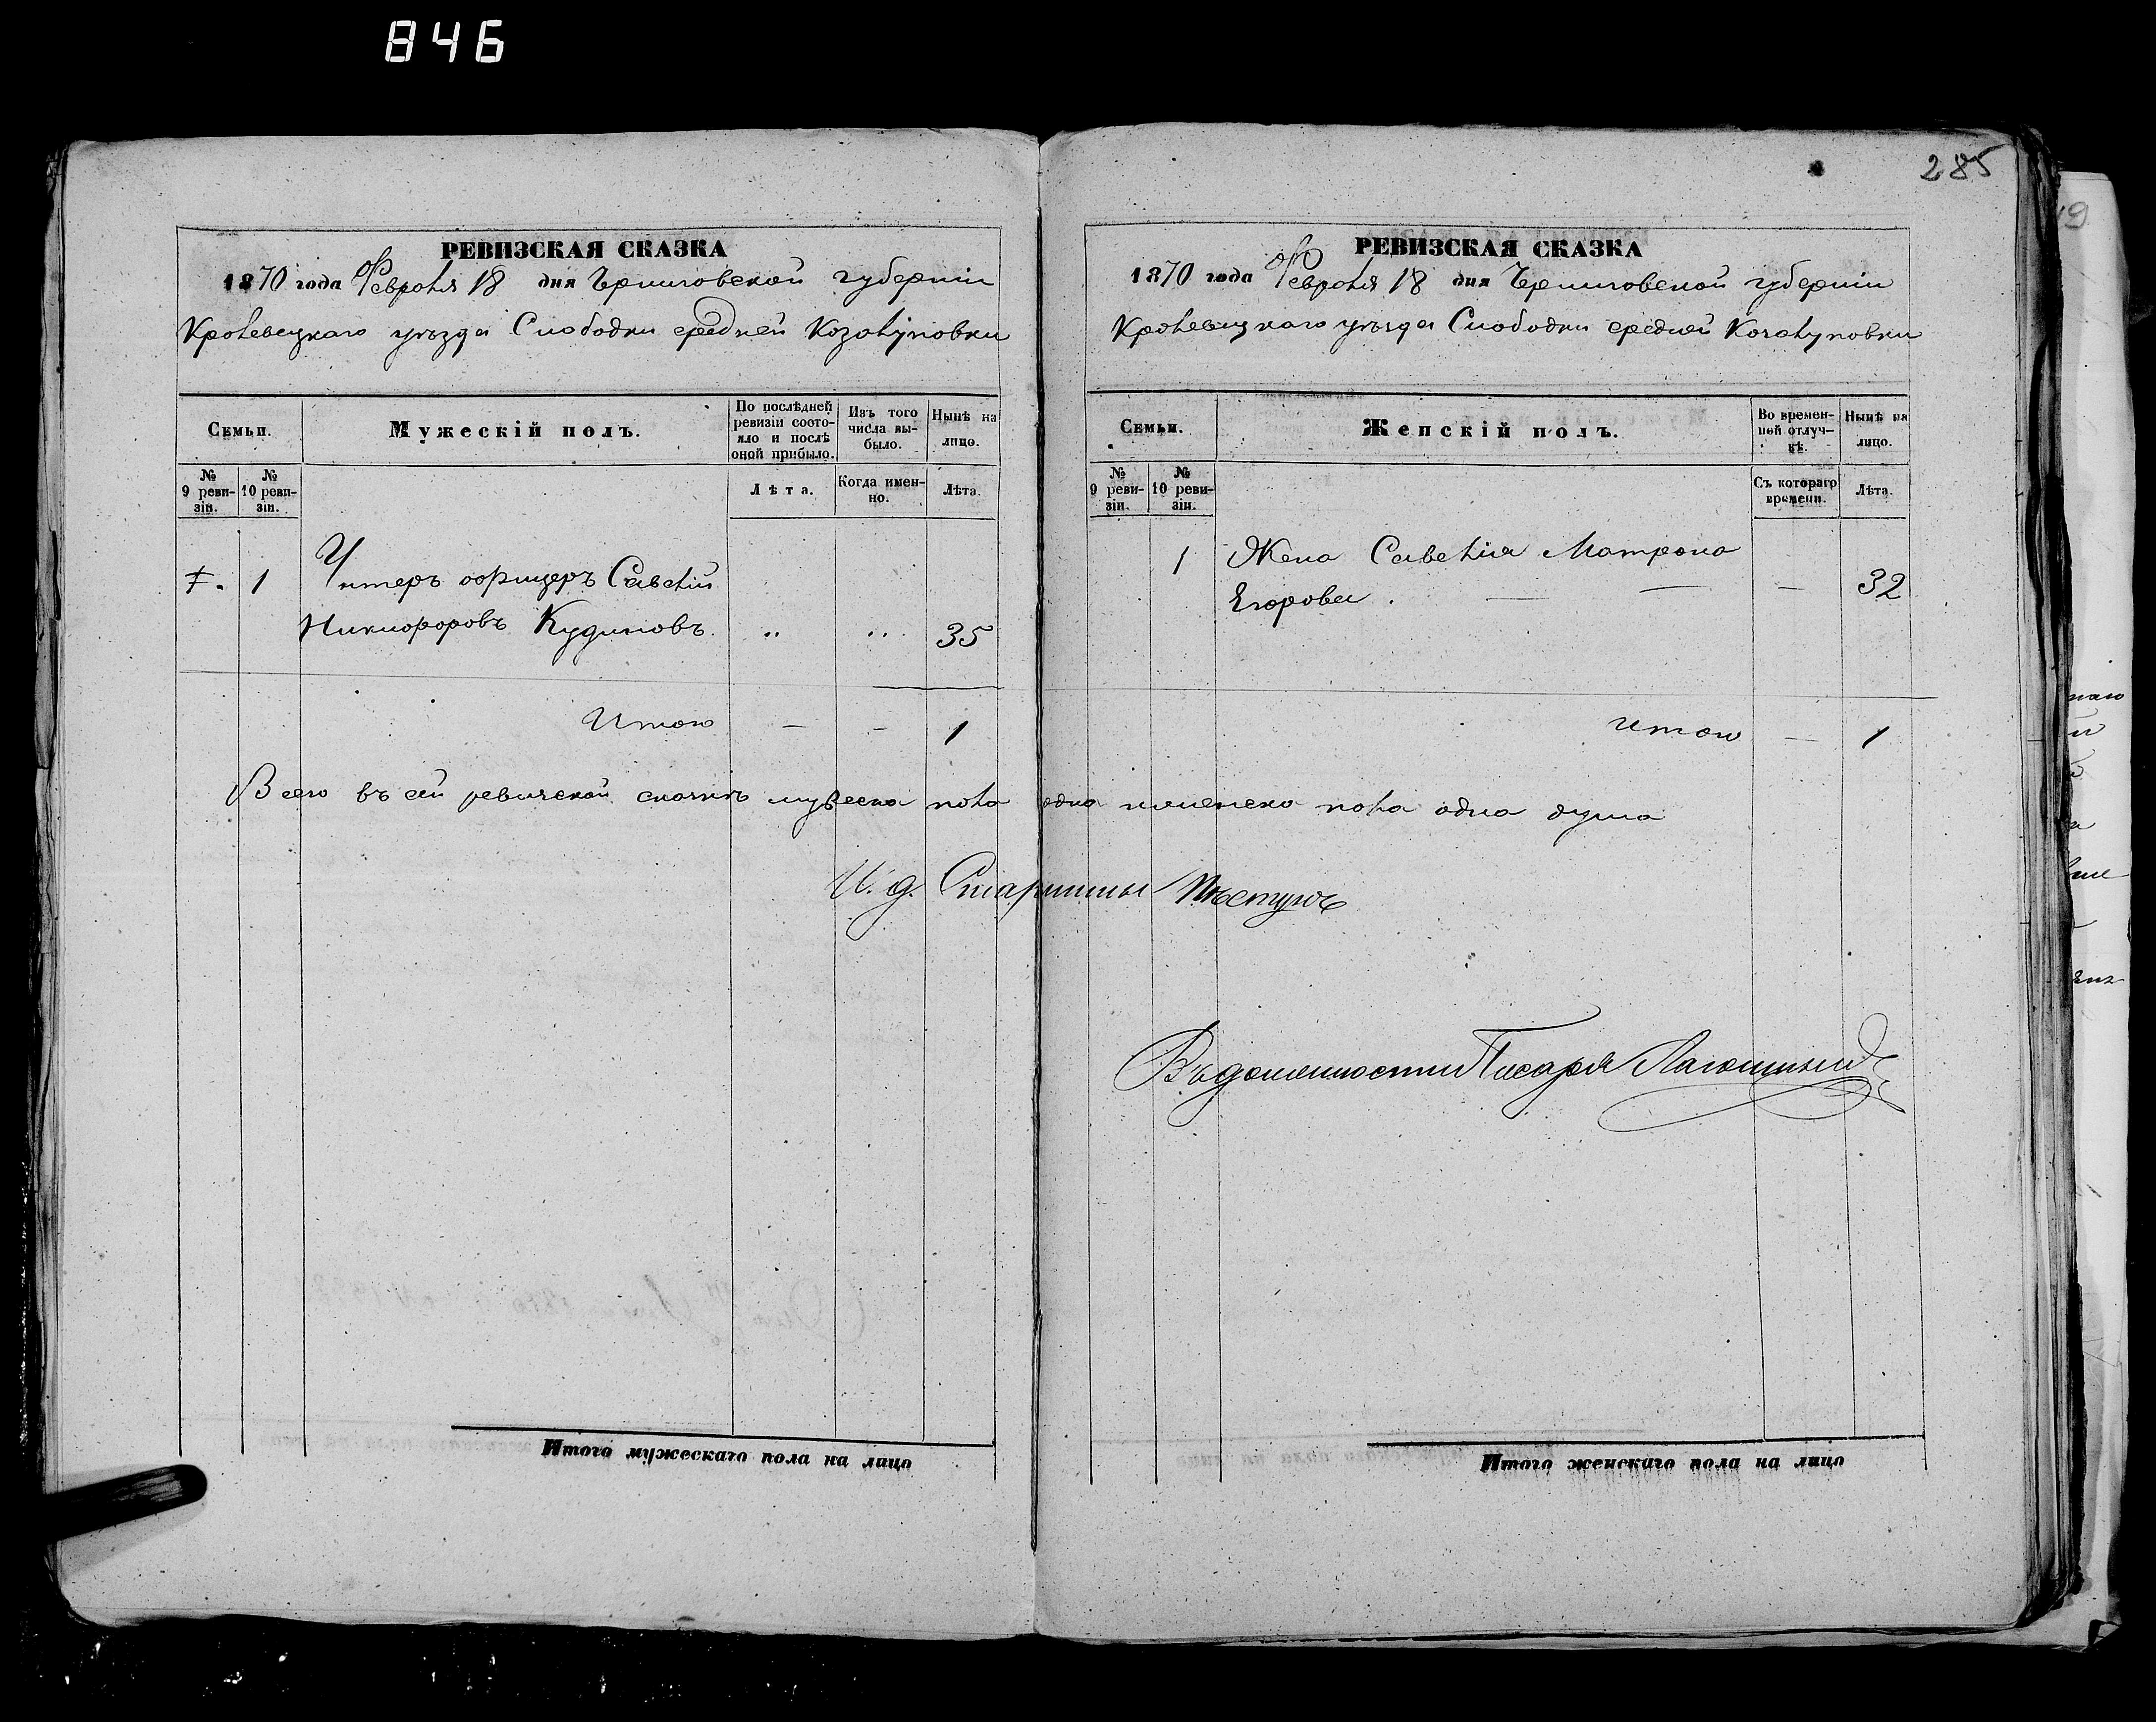 846
285
РЕВИЗСКАЯ СКАЗКА
1870 года Февраля 18 дня Черниговской губерніи
Кролевецкаго уѣзда Слободки средней Козолуповки
Семьи.
Мужескій полъ.
По послѣдней ревизіи состояло и послѣ оной прибыло.
Изъ того числа выбыло.
Нынѣ на лицо.
№ 9 ревизіи.
№ 10 ревизіи.
Лѣта.
Когда именно.
Лѣта.
1 Унтеръ офицеръ Савелій
Никифоровъ Кудиновъ. 35
Итого — — 1
РЕВИЗСКАЯ СКАЗКА
1870 года Февраля 18 дня Черниговской губерніи
Кролевецкаго уѣзда Слободки средней Козолуповки
Семьи.
Женскій полъ.
Во временной отлучкѣ.
Нынѣ на лицо.
№ 9 ревизіи.
№ 10 ревизіи.
Съ котораго времени.
Лѣта.
1 Жена Савелія Матрона
Егорова. — — — 32
Итого — 1
Всего въ сей ревизской сказкѣ мужеска пола одна женска пола одна душа
И. д. Старшины
Въ должности Писаря
Итого мужескаго пола на лицо
Итого женскаго пола на лицо